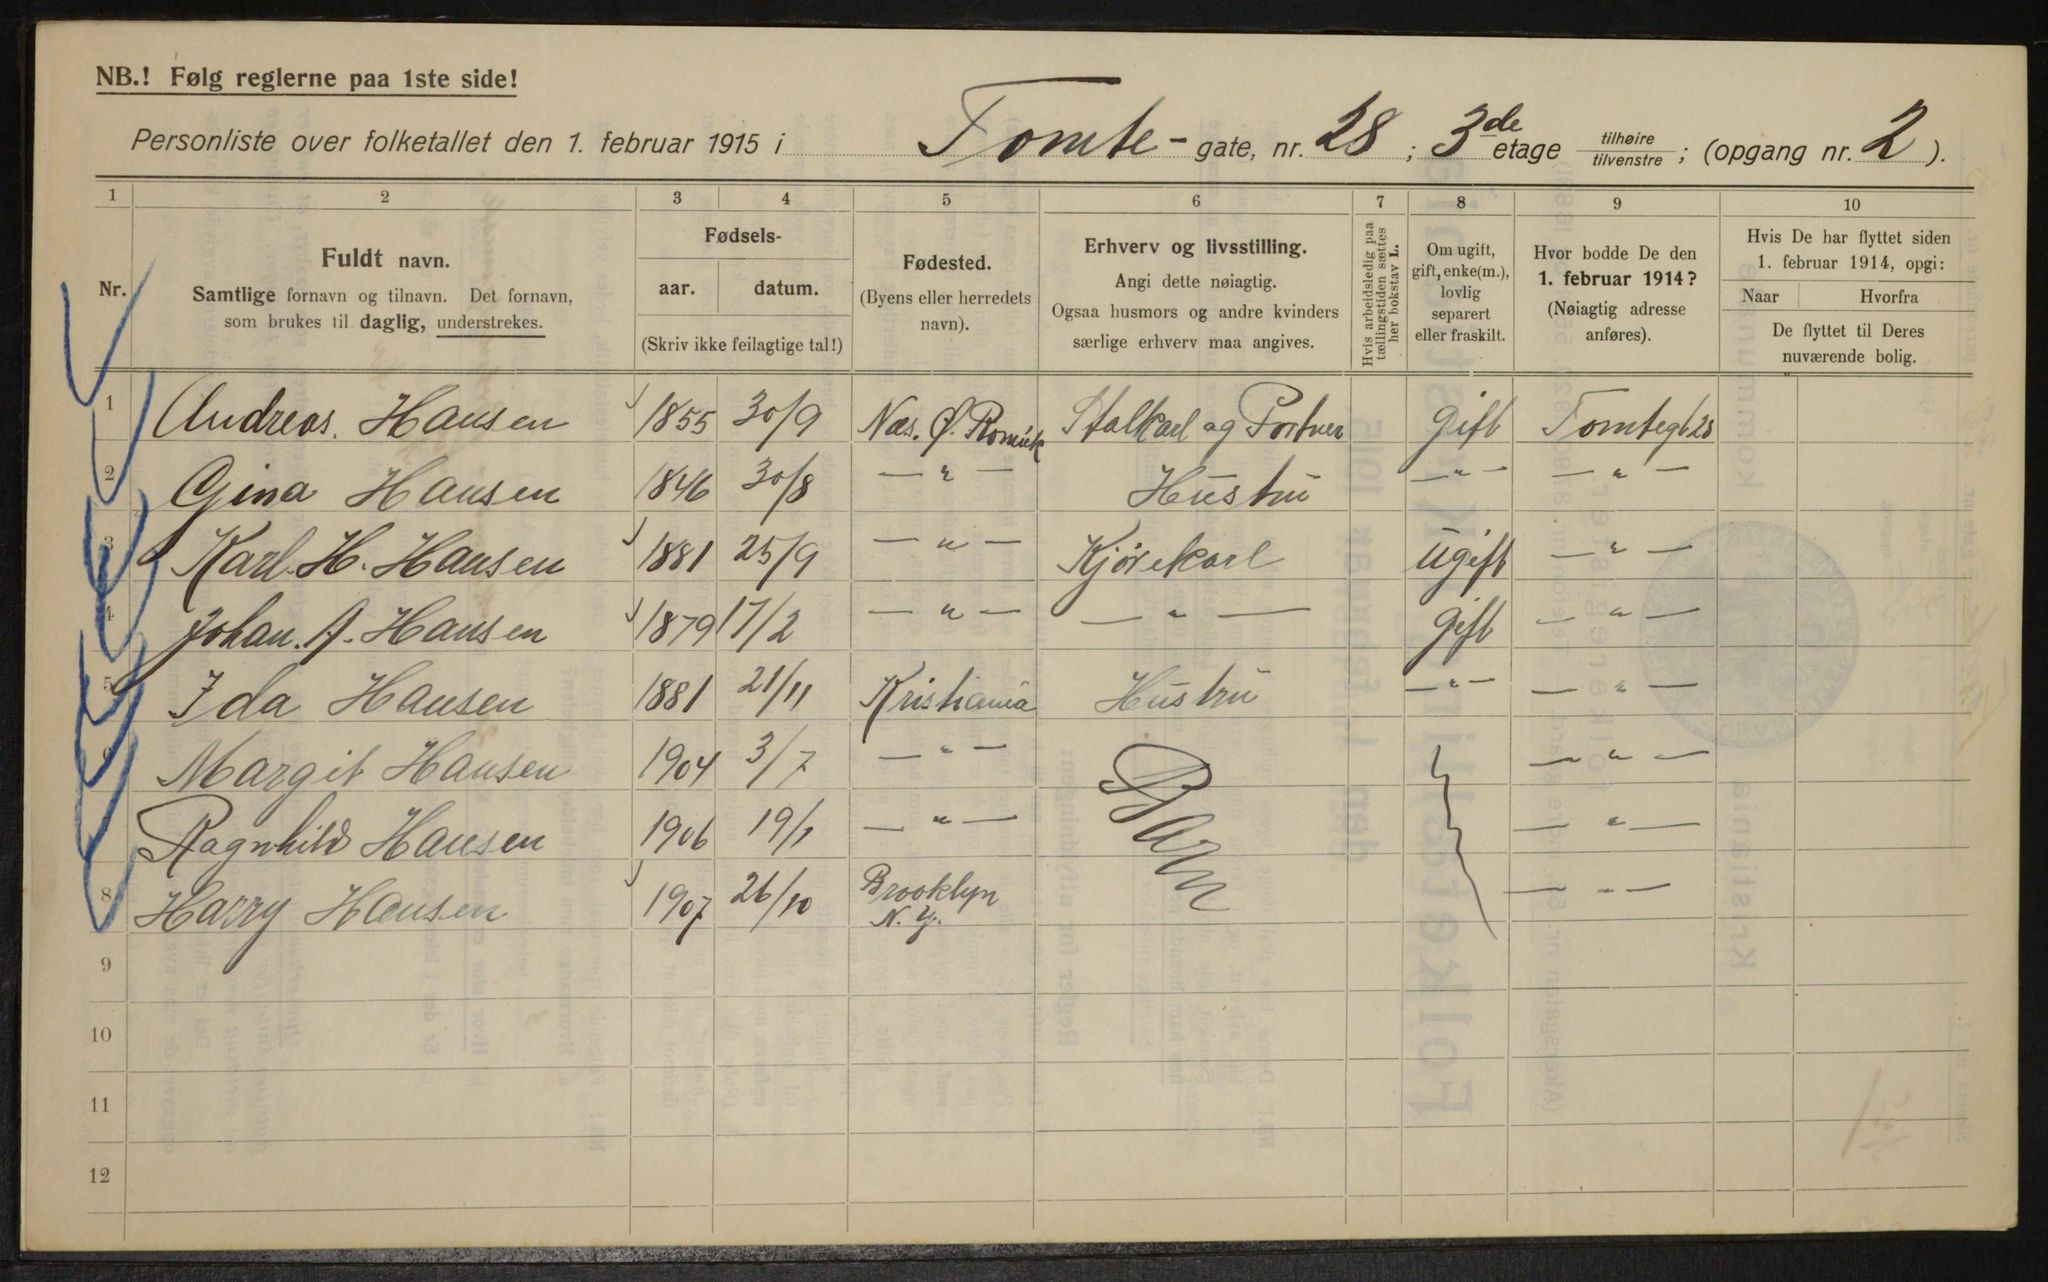 NB.! Følg reglerne paa 1ste side!
Personliste over folketallet den 1. februar 1915 i Tomte- gate, nr. 28 ; 3de etage tilhøire / tilvenstre ; (opgang nr. 2 ).
1 2 3 4 5 6 7 8 9 10
Nr.
Fuldt navn.
Samtlige fornavn og tilnavn. Det fornavn,
som brukes til daglig, understrekes.
Fødsels-
aar. datum.
(Skriv ikke feilagtige tal!)
Fødested.
(Byens eller herredets
navn).
Erhverv og livsstilling.
Angi dette nøiagtig.
Ogsaa husmors og andre kvinders
særlige erhverv maa angives.
Hvis arbeidsledig paa
tællingstiden sættes
her bokstav L.
Om ugift,
gift, enke(m.),
lovlig
separert
eller fraskilt.
Hvor bodde De den
1. februar 1914?
(Nøiagtig adresse
anføres).
Hvis De har flyttet siden
1. februar 1914, opgi:
Naar Hvorfra
De flyttet til Deres
nuværende bolig.
1 Andreas. Hansen 1855 30/9 Næs. Ø. Romrik Stalkarl og Portner gift Tomtegt 28
2 Gina Hansen 1846 30/8 — " — Hustru — " — — " —
3 Karl. H. Hansen 1881 25/9 — " — Kjørekarl ugift — " —
4 Johan. A. Hansen 1879 17/2 — " — — " — gift — " —
5 Ida Hansen 1881 21/11 Kristiania Hustru — " — — " —
6 Margit Hansen 1904 3/7 — " — Barn — " —
7 Ragnhild Hansen 1906 19/1 — " — — " —
8 Harry Hansen 1907 26/10 Brooklyn N. Y. — " —
9
10
11
12